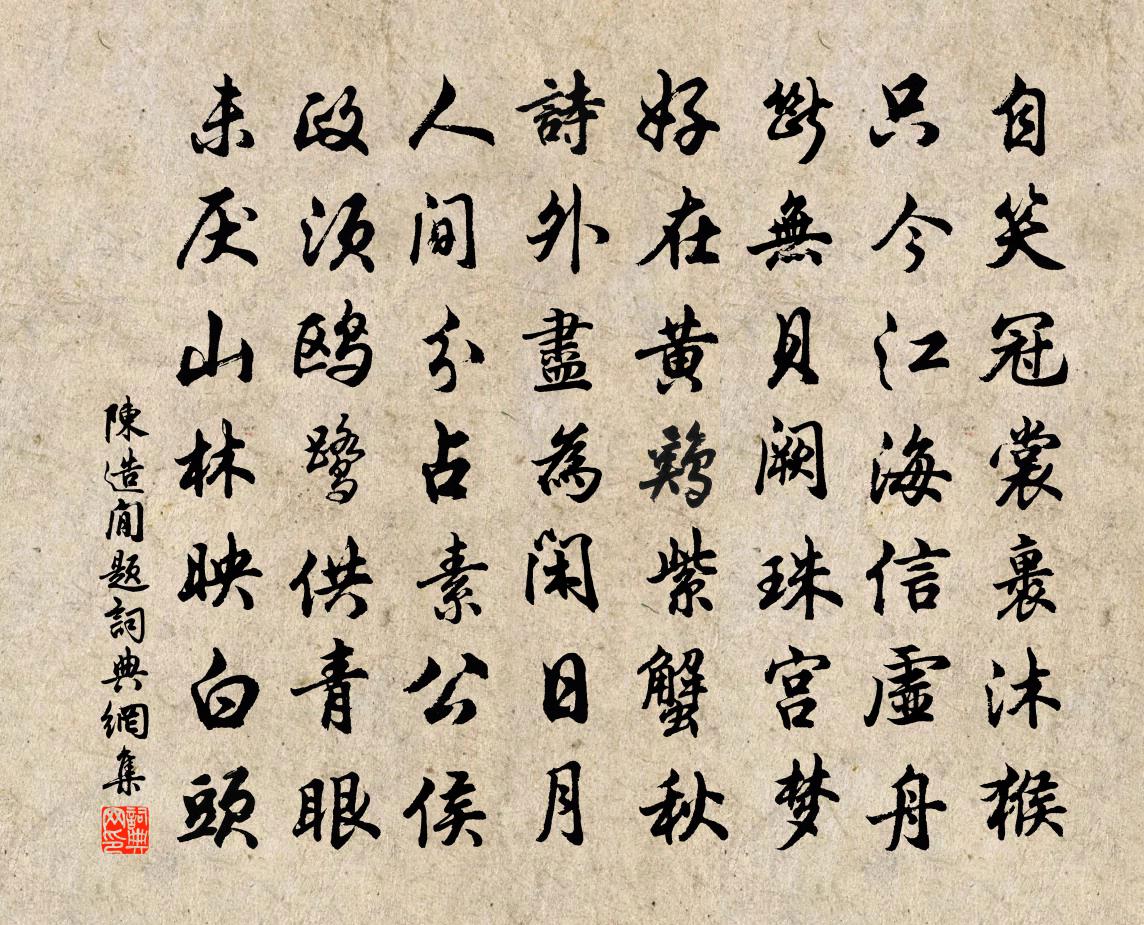 自笑冠裳裹沐猴
只今江海信虛舟
斷無貝闕珠宮梦
好在黄鷄紫蟹秋
詩外盡為閑日月
人間分占素公侯
政須鸥鹭供青眼
未厌山林映白頭
陳造閒題詞典網集
詞典网印